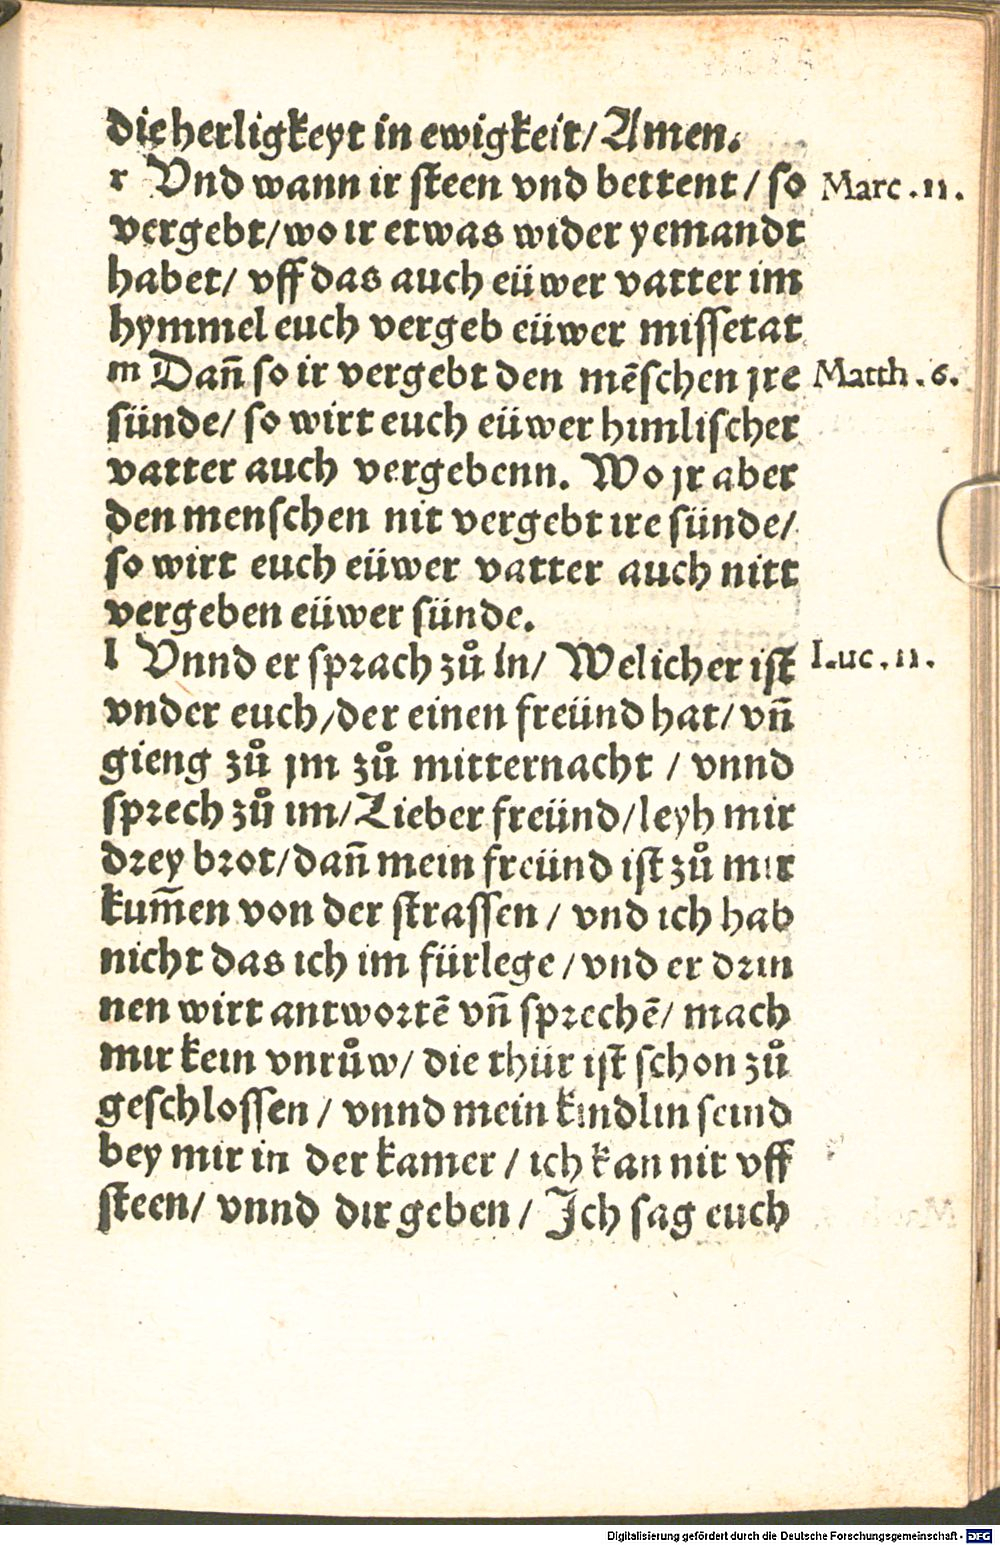 die herligkeyt in ewigkeit/ Amen.
r Vnd wann ir steen vnd bettent / so
Marc .11.
vergebt/ wo ir etwas wider yemandt
habet/ vff das auch eüwer vatter im
hymmel euch vergeb eüwer missetat
m Dañ so ir vergebt den mēschen jre
Matth .6.
sünde/ so wirt euch eüwer himlischer
vatter auch vergebenn. Wo jr aber
den menschen nit vergebt ire sünde/
so wirt euch eüwer vatter auch nitt
vergeben eüwer sünde.
l Vnnd er sprach zů in/ Welicher ist
Luc .11.
vnder euch/ der einen freünd hat/ vñ
gieng zů jm zů mitternacht / vnnd
sprech zů im/ Lieber freünd/ leyh mir
drey brot/ dañ mein freünd ist zů mir
kum̃en von der strassen / vnd ich hab
nicht das ich im fürlege / vnd er drin
nen wirt antwortē vñ sprechē/ mach
mir kein vnrůw/ die thür ist schon zů
geschlossen / vnnd mein kindlin seind
bey mir in der kamer / ich kan nit vff
steen/ vnnd dir geben / Ich sag euch
Digitalisierung gefördert durch die Deutsche Forschungsgemeinschaft - DFG